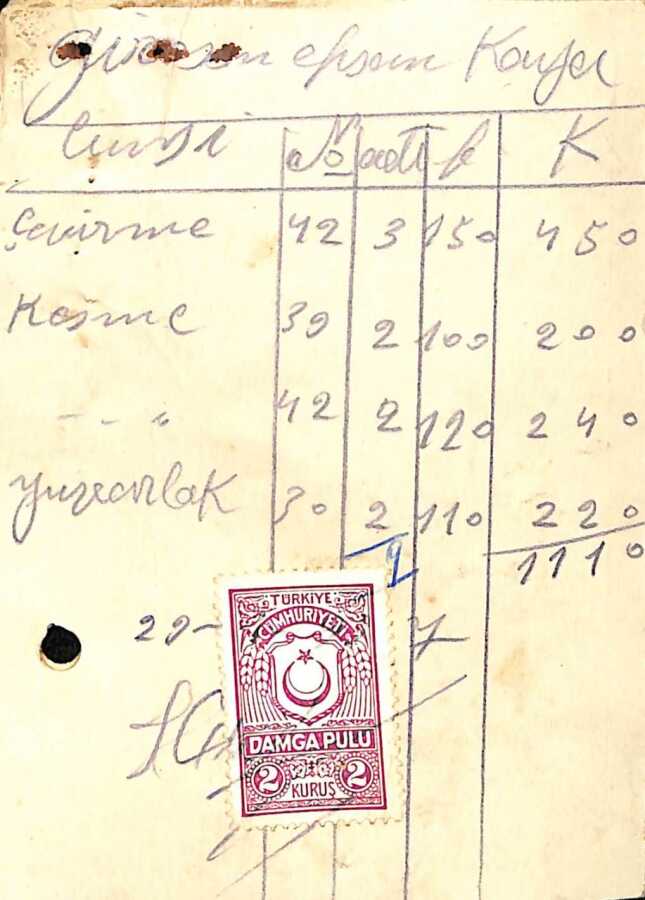 Cinsi No adti f K
Çevirme 42 3 150 450
Kesme 39 2 100 200
- - " 42 2 120 240
yuvarlak 30 2 110 220
1110
29-
TÜRKİYE
CUMHURİYETİ
DAMGA PULU
2 KURUŞ 2